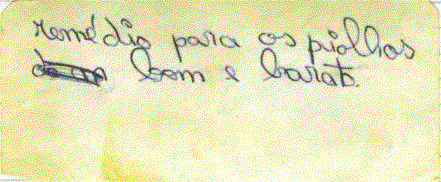 remédio para os piolhos
bem e barato